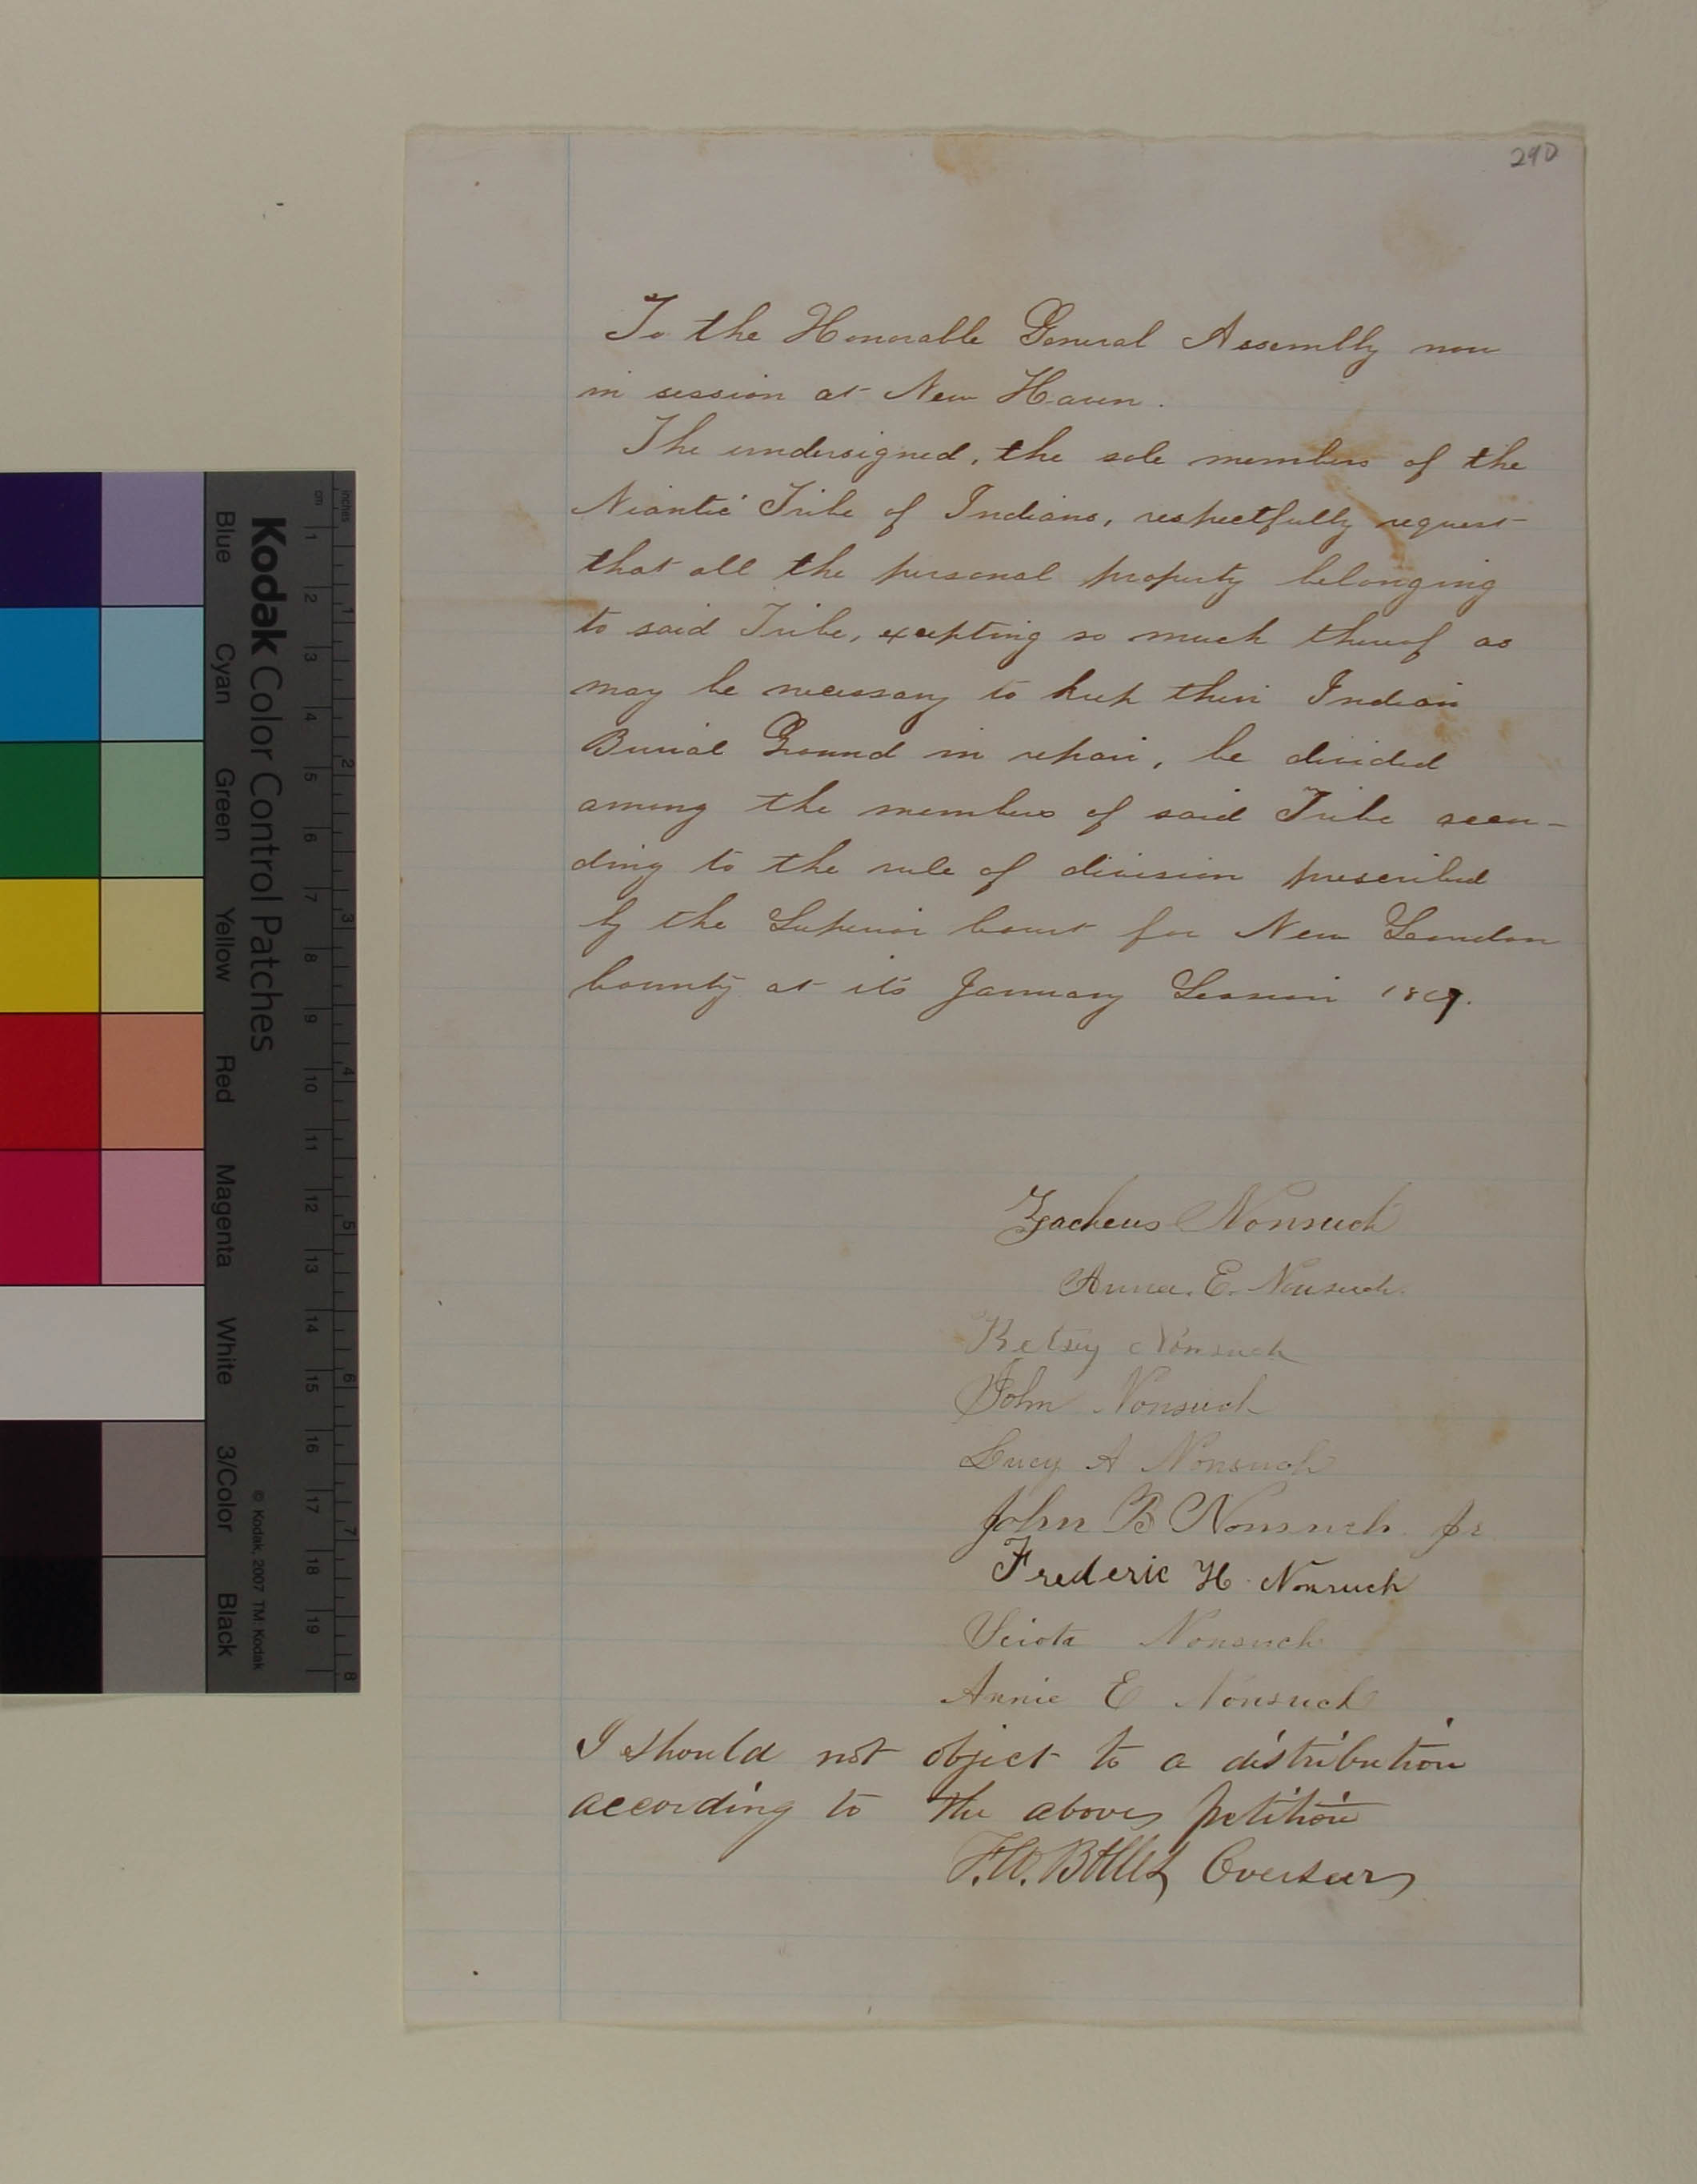 290
To the Honorable General Assembly now
in session at New Haven.
The undersigned, the sole members of the
Niantic Tribe of Indians, respectfully request
that all the personal property belonging
to said Tribe, excepting so much thereof as
may be necessary to keep their Indian
Burial Ground in repair, be divided
among the members of said Tribe accor-
ding to the rule of division prescribed
by the Superior Court for New London
County at its January Session
Zacheus Nonsuch
Anna. E. Nonsuch.
Betsey Nonsuch
John Nonsuch
Lucy A Nonsuch
John B Nonsuch Jr
Frederic H. Nonsuch
Sciota Nonsuch
Annie E Nonsuch
I should not object to a distribution
according to the above petition
F.W. Bolles Overseer
Kodak Color Control Patches
© Kodak, 2007 TM: Kodak
Blue Cyan Green Yellow Red Magenta White 3/Color Black
cm 1 2 3 4 5 6 7 8 9 10 11 12 13 14 15 16 17 18 19
inches 1 2 3 4 5 6 7 8